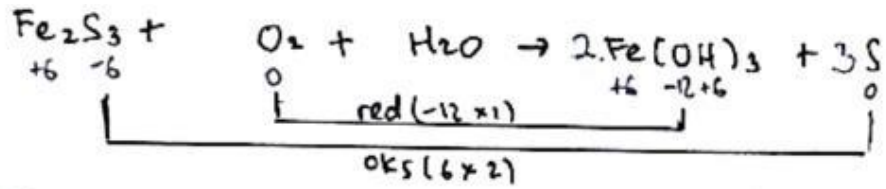 Fe₂S₃ + O₂ + H₂O → 2.Fe(OH)₃ + 3S
+6 -6 0 +6 -12+6 0
red (-12 × 1)
oks (6 × 2)